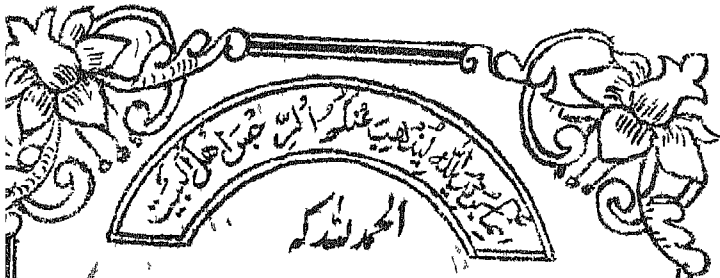 انما یرید اللہ لیذهب عنکم الرجس اهل البیت
الحمد للہ کہ